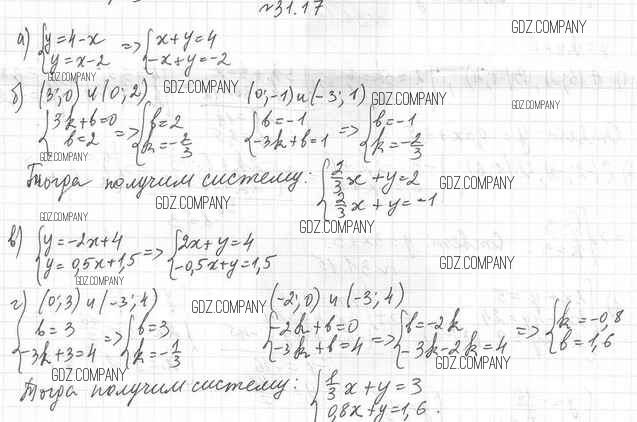 №31.17
GDZ.COMPANY
а) {y=4-x => {x+y=4
{y=x-2 {-x+y=-2
GDZ.COMPANY
GDZ.COMPANY
б) (3;0) и (0;2) (0;-1) и (-3;1)
GDZ.COMPANY
GDZ.COMPANY
{3k+b=0 => {b=2 {b=-1 => {b=-1
{b=2 {k=-2/3 {-3k+b=1 {k=-2/3
GDZ.COMPANY
Тогда получим систему: {2/3x+y=2
{2/3x+y=-1
GDZ.COMPANY
GDZ.COMPANY
GDZ.COMPANY
GDZ.COMPANY
в) {y=-2x+4 => {2x+y=4
{y=0,5x+1,5 {-0,5x+y=1,5
GDZ.COMPANY
GDZ.COMPANY
г) (0;3) и (-3;4) (-2;0) и (-3;4)
GDZ.COMPANY
{b=3 => {b=3 {-2k+b=0 => {b=-2k => {k=-0,8
{-3k+3=4 {k=-1/3 {-3k+b=4 {-3k-2k=4 {b=1,6
GDZ.COMPANY
GDZ.COMPANY
Тогда получим систему: {1/3x+y=3
{0,8x+y=1,6.